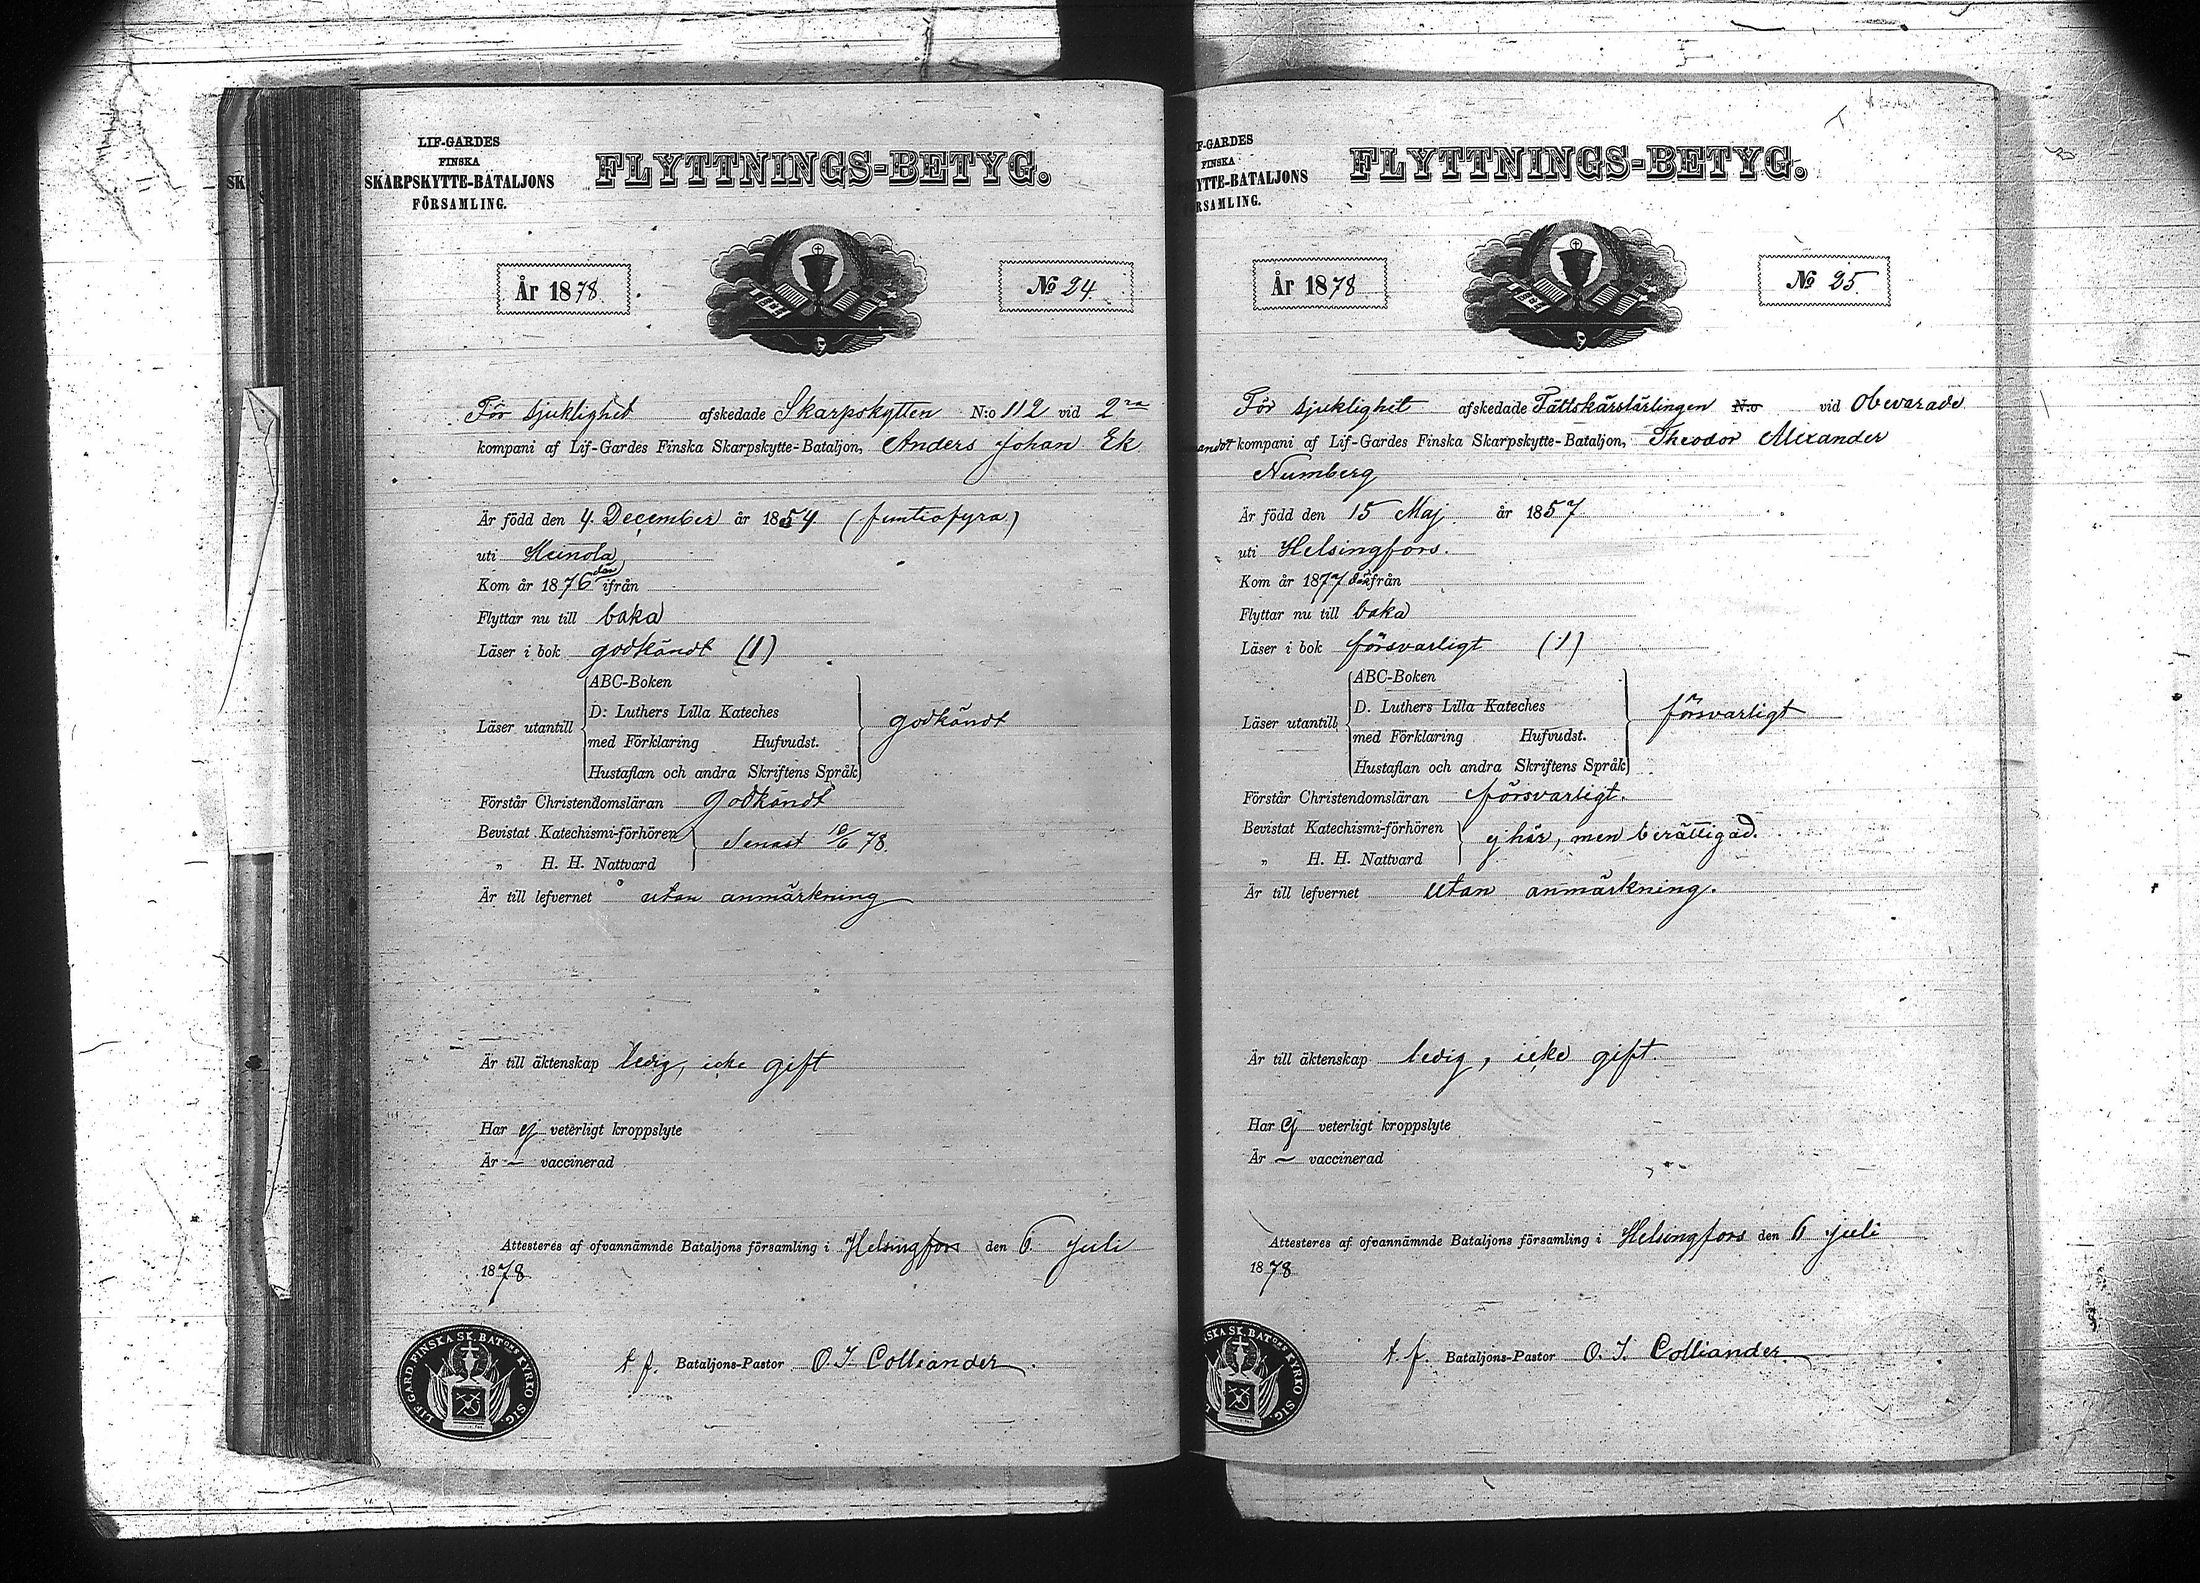 LIF-GARDES
FINSKA
SKARPSKYTTE-BATALJONS
FÖRSAMLING.
FLYTTNINGS-BETYG.
År 1878.
No 24
För sjuklighet afskedade Skarpskytten N:o 112 vid 2ra
kompani af Lif-Gardes Finska Skarpskytte-Bataljon, Anders Johan Ek
Är född den 4. December år 1854 (femtiofyra)
uti Heinola
Kom år 1876 dän ifrån
Flyttar nu till baka
Läser i bok godkändt (1)
Läser utantill
ABC-Boken
D: Luthers Lilla Kateches
med Förklaring Hufvudst.
Hustaflan och andra Skriftens Språk
godkändt
Förstår Christendomsläran godkändt
Bevistat Katechismi-förhören
„ H. H. Nattvard
Senast 10/6 78.
Är till lefvernet utan anmärkning
Är till äktenskap ledig, icke gift
Har ej veterligt kroppslyte
Är — vaccinerad
Attesteres af ofvannämnde Bataljons församling i Helsingfors den 6 Juli
1878.
t. f. Bataljons-Pastor O. I. Colliander.
LIF-GARD. FINSKA SK. BATONS KYRKO SIG.
SK
F-GARDES
FINSKA
YTTE-BATALJONS
RSAMLING.
FLYTTNINGS-BETYG.
År 1878
No 25.
För sjuklighet afskedade Fältskärslärlingen N:o vid Obevarade
kompani af Lif-Gardes Finska Skarpskytte-Bataljon, Theodor Alexander
Numberg
Är född den 15 Maj år 1857
uti Helsingfors.
Kom år 1877 dän ifrån
Flyttar nu till baka
Läser i bok försvarligt (1)
Läser utantill
ABC-Boken
D. Luthers Lilla Kateches
med Förklaring Hufvudst.
Hustaflan och andra Skriftens Språk
försvarligt
Förstår Christendomsläran försvarligt.
Bevistat Katechismi-förhören
„ H. H. Nattvard
ej här, men berättigad.
Är till lefvernet utan anmärkning.
Är till äktenskap ledig, icke gift.
Har ej veterligt kroppslyte
Är — vaccinerad
Attesteres af ofvannämnde Bataljons församling i Helsingfors den 6 Juli
1878
t. f. Bataljons-Pastor O. I. Colliander.
SKA SK. BATONS KYRKO SIG.